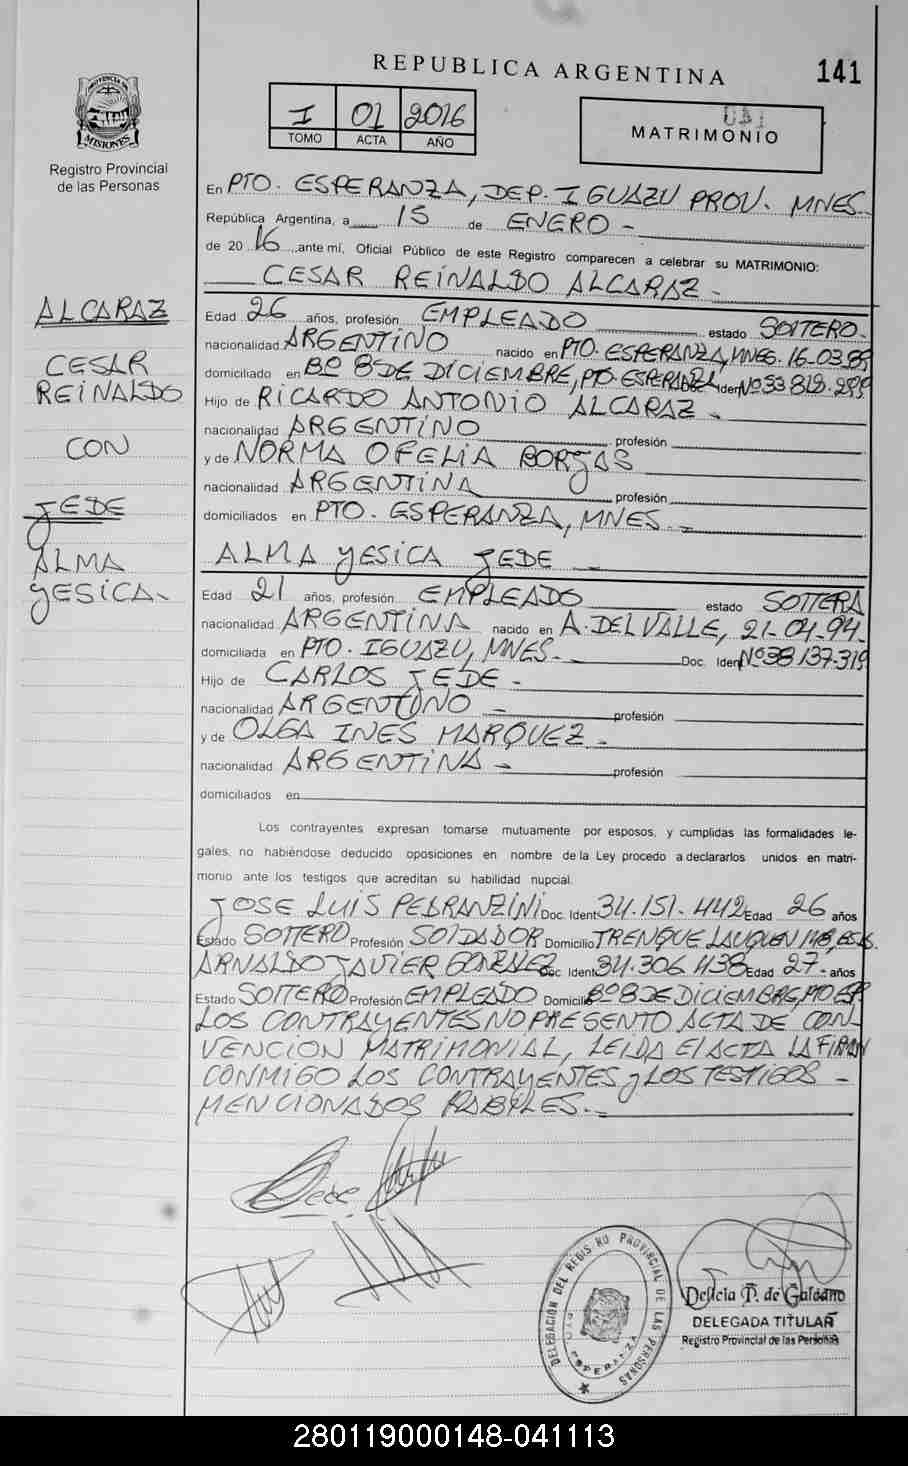 REPUBLICA ARGENTINA
141
I 01 2016
TOMO ACTA AÑO
MATRIMONIO
PROVINCIA DE MISIONES
Registro Provincial
de las Personas
En PTO. ESPERANZA, DEP. IGUAZU PROV. MNES.
República Argentina, a 15 de ENERO -
de 20 16 ante mí, Oficial Público de este Registro comparecen a celebrar su MATRIMONIO:
CESAR REINALDO ALCARAZ -
ALCARAZ
CESAR
REINALDO
CON
JEDE
ALMA
YESICA-
Edad 26 años, profesión EMPLEADO estado SOLTERO-
nacionalidad ARGENTINO nacido en PTO. ESPERANZA, MNES. 16-03-89
domiciliado en Bº 8 DE DICIEMBRE, PTO-ESPERANZA Iden Nº 33 819.289
Hijo de RICARDO ANTONIO ALCARAZ -
nacionalidad ARGENTINO profesión
y de NORMA OFELIA BORJAS
nacionalidad ARGENTINA profesión
domiciliados en PTO. ESPERANZA, MNES. -
ALMA YESICA JEDE -
Edad 21 años, profesión EMPLEADO estado SOLTERA
nacionalidad ARGENTINA nacido en A. DEL VALLE, 21-04-94-
domiciliada en PTO. IGUAZU, MNES. - Doc. Iden Nº 38 137-319
Hijo de CARLOS JEDE -
nacionalidad ARGENTINO - profesión
y de OLGA INES MARQUEZ -
nacionalidad ARGENTINA - profesión
domiciliados en
Los contrayentes expresan tomarse mutuamente por esposos, y cumplidas las formalidades le-
gales, no habiéndose deducido oposiciones en nombre de la Ley procedo a declararlos unidos en matri-
monio ante los testigos que acreditan su habilidad nupcial.
JOSE LUIS PEDRANZINI Doc. Ident 34-151-442 Edad 26 años
Estado SOLTERO Profesión SOLDADOR Domicilio TRENQUE LAUQUEN 148, BS.AS.
ARNALDO JAVIER GONZALEZ Doc Ident 34.306 438 Edad 27- años
Estado SOLTERO Profesión EMPLEADO Domicili Bº 8 DE DICIEMBRE, PTO ESP.
LOS CONTRAYENTES NO PRESENTO ACTA DE CON-
VENCION MATRIMONIAL, LEIDA El ACTA LA FIRMAN
CONMIGO LOS CONTRAYENTES y LOS TESTIGOS -
MENCIONADOS HABILES. -
Jede
DELEGACION DEL REGISTRO PROVINCIAL DE LAS PERSONAS
PTO ESPERANZA
Delicia T. de Galeano
DELEGADA TITULAR
Registro Provincial de las Personas
280119000148-041113